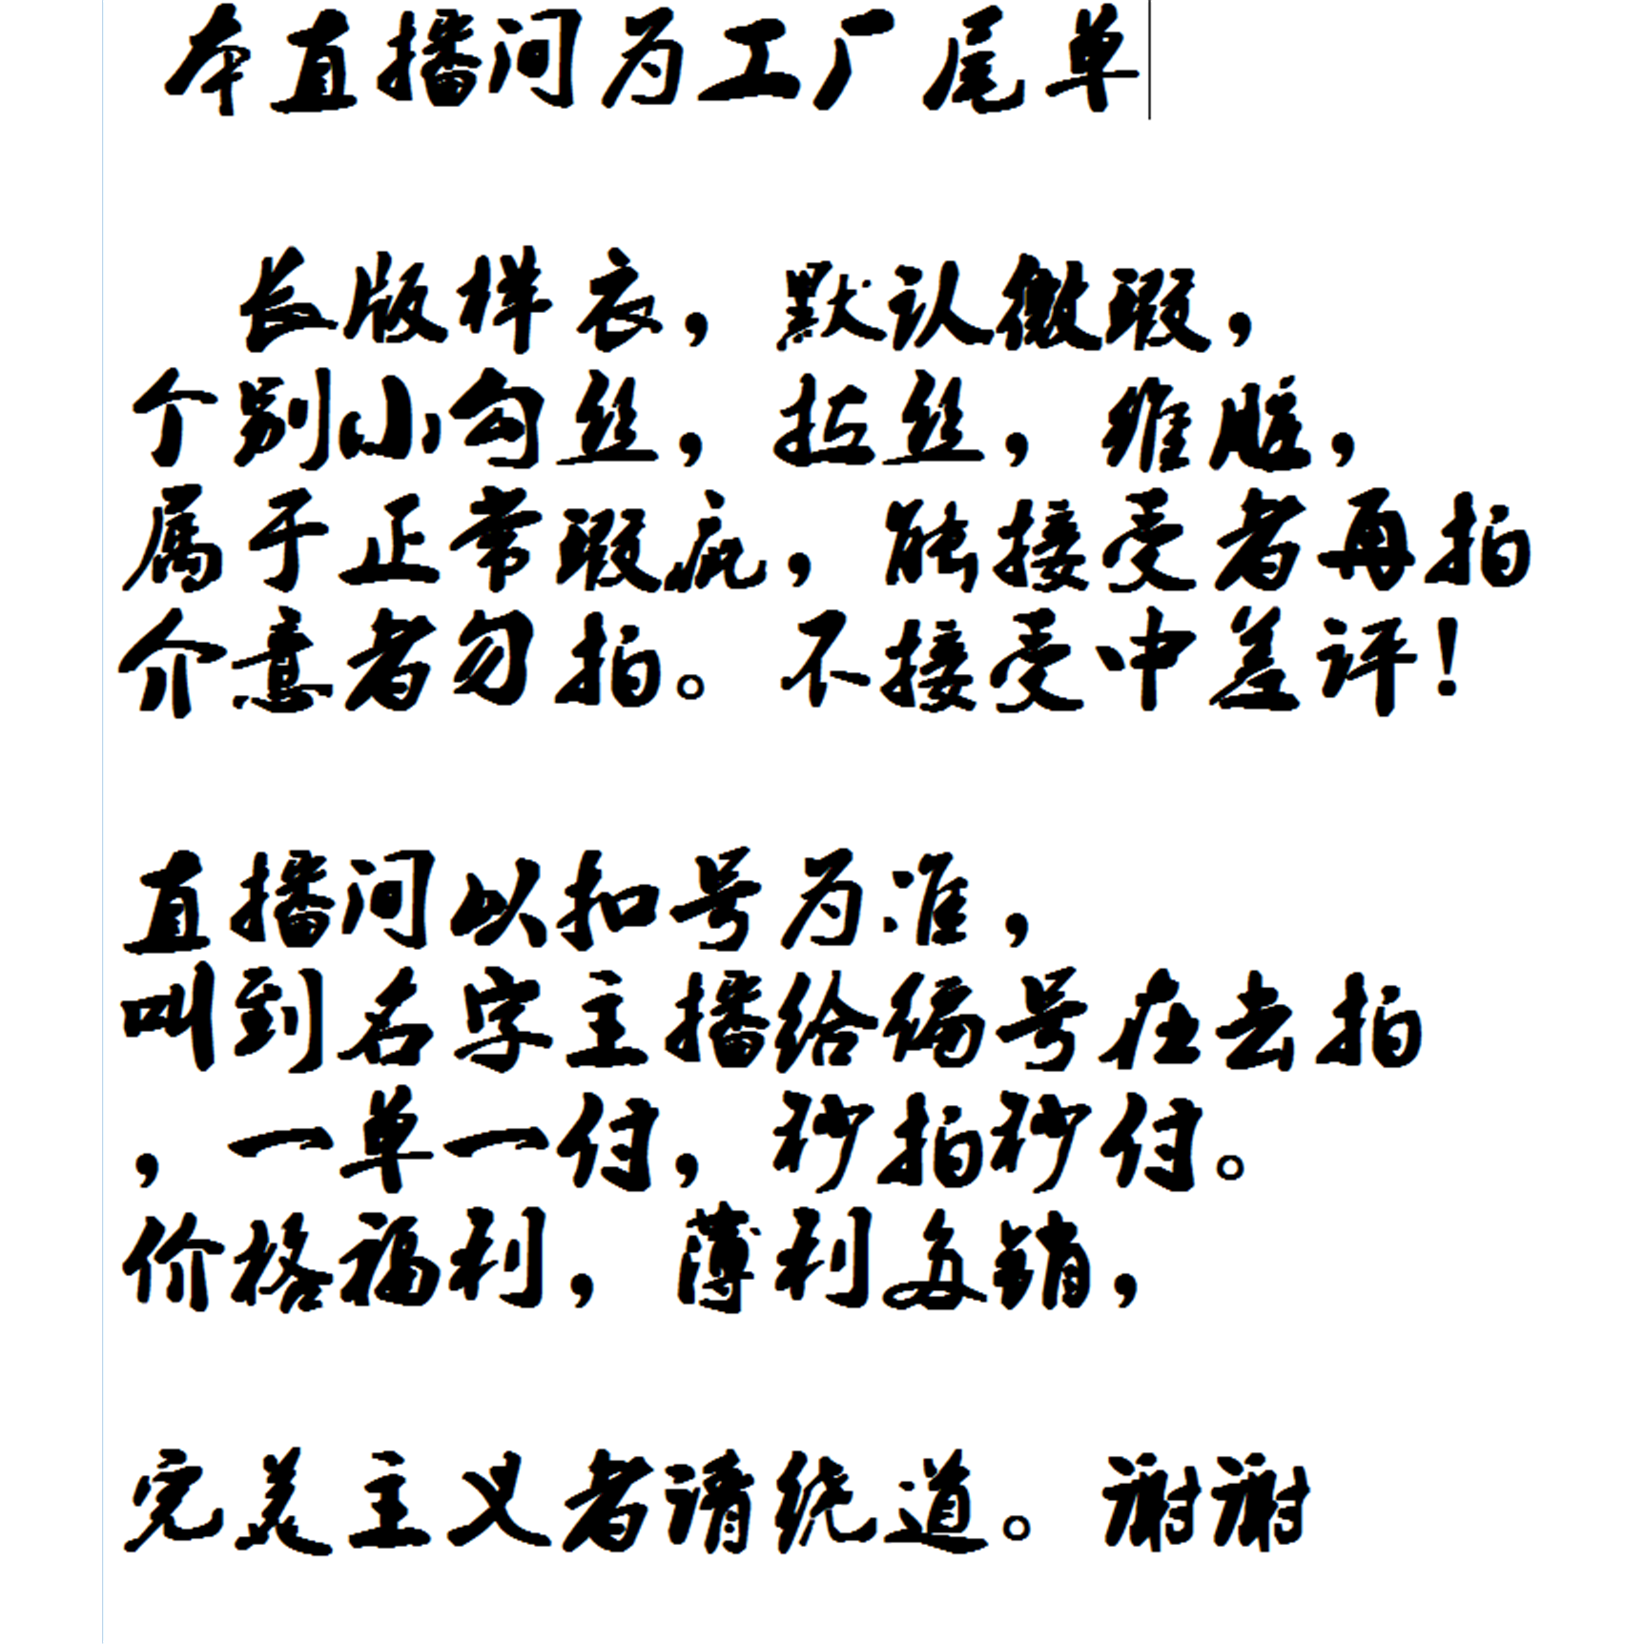 本直播间为工厂尾单
长版样衣，默认微瑕，
个别小勾丝，拉丝，维脏，
属于正常瑕疵，能接受者再拍
介意者勿拍。不接受中差评！
直播间以扣号为准，
叫到名字主播给编号在去拍
，一单一付，秒拍秒付。
价格福利，薄利多销，
完美主义者请绕道。谢谢